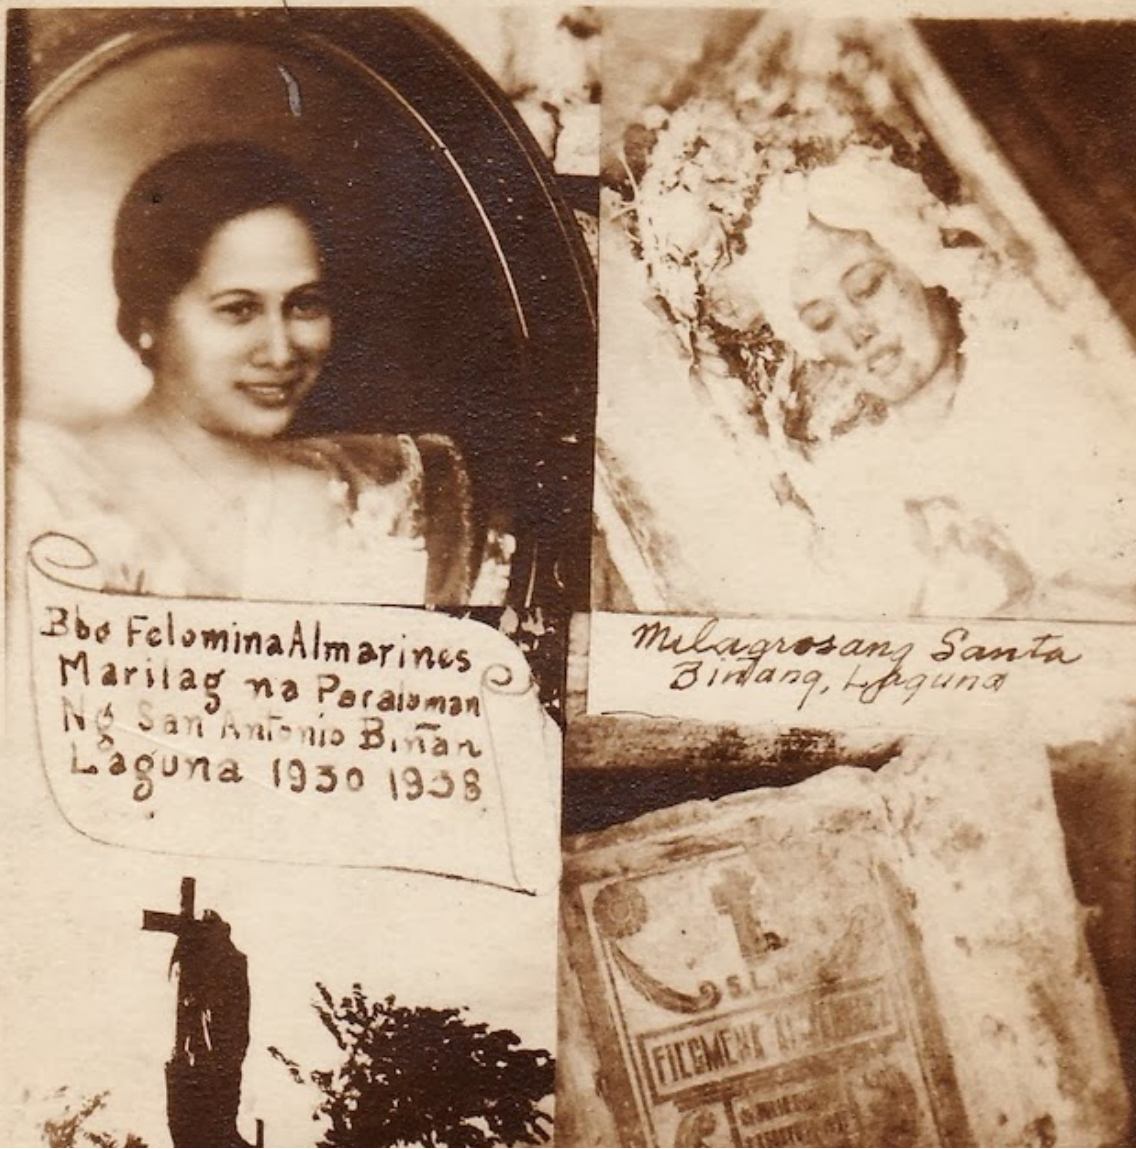 Bbo Felomina Almarines
Marilag na Paraluman
Ng San Antonio Biñan
Laguna 1930 1938
Milagrosang Santa
Biñang, Laguna
FILOMENA